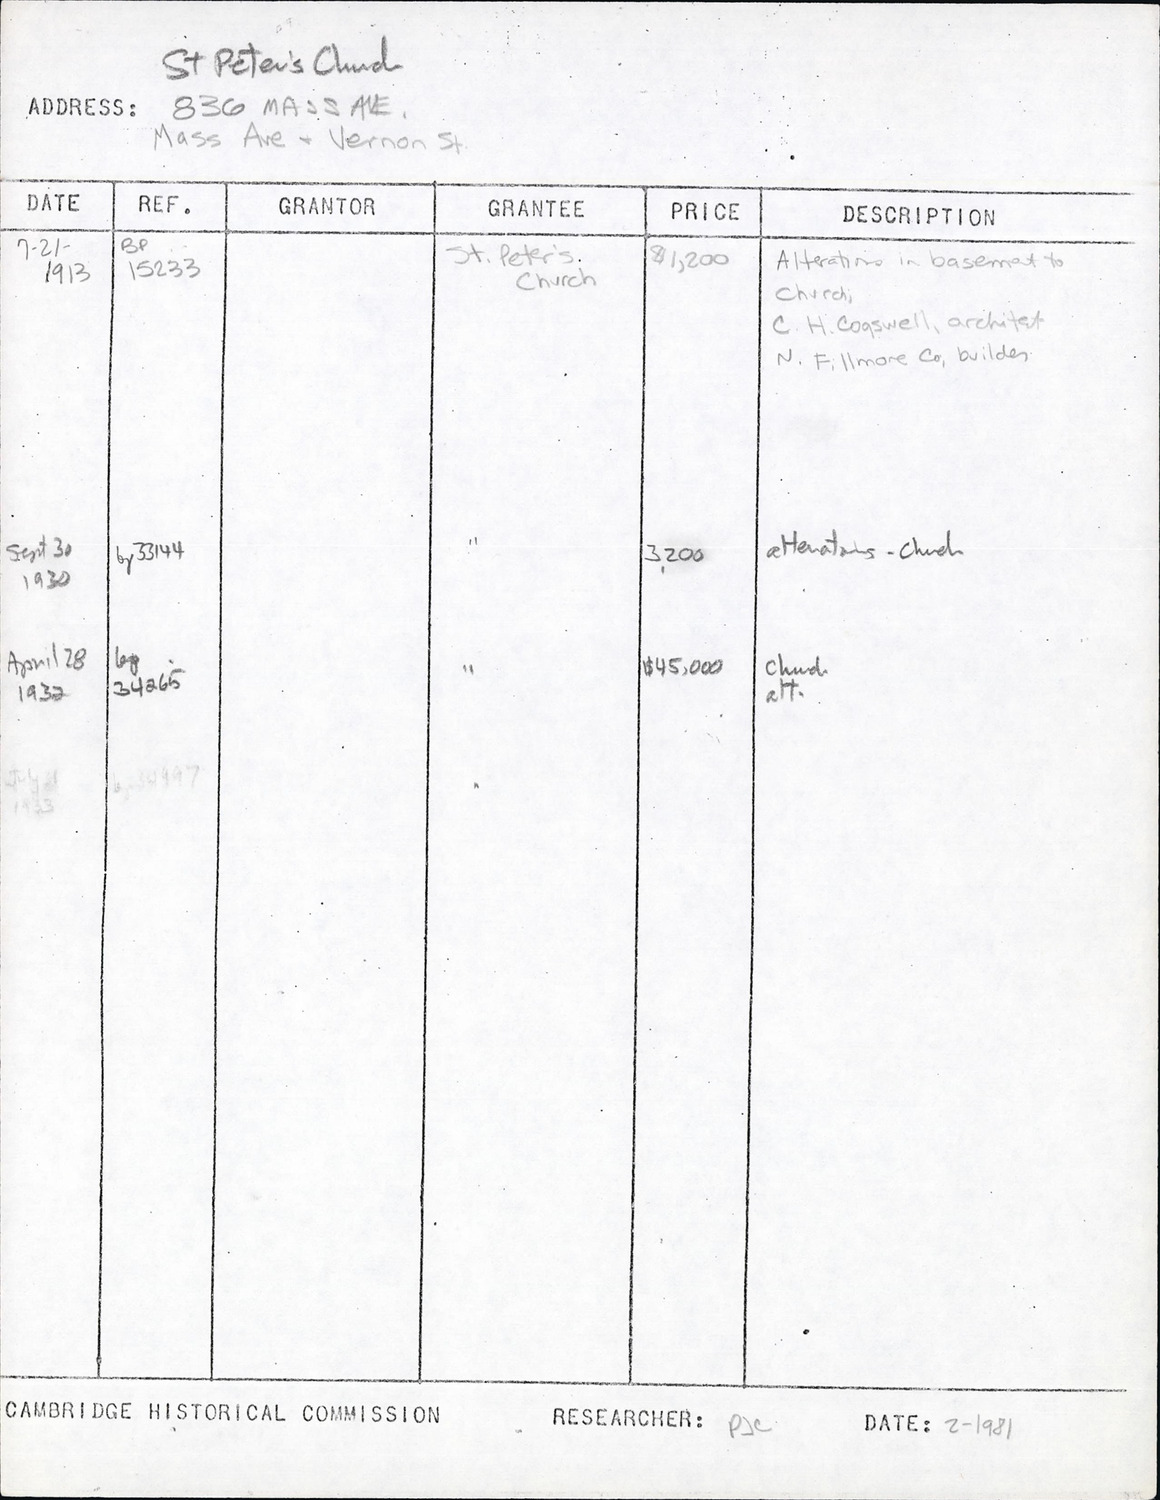 St Peter's Church
ADDRESS: 836 MASS AVE.
Mass Ave + Vernon St.
DATE REF. GRANTOR GRANTEE PRICE DESCRIPTION
7-21- BP St. Peter's $1,200 Alterations in basement to
1913 15233 Church Church;
C. H. Cogswell, architect
N. Fillmore Co, builder
Sept 30 bp 33144 " 3,200 alterations - Church
1930
April 28 bp " $45,000 Church
1932 34265 alt.
July "
1933
CAMBRIDGE HISTORICAL COMMISSION RESEARCHER: DATE: 2-1981